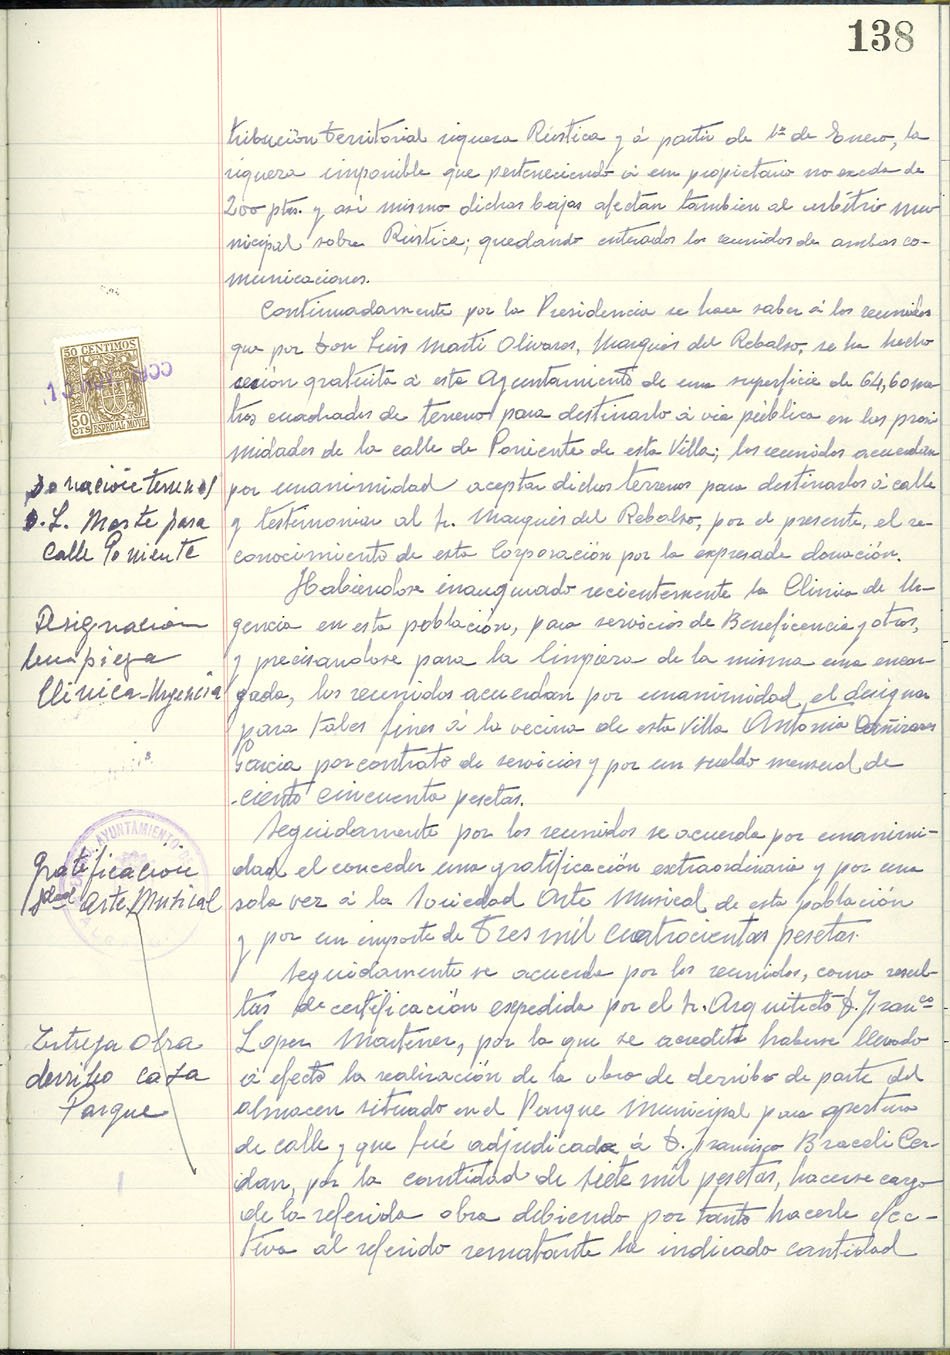 138
tribución territorial riqueza Rústica y á partir de 1º de Enero, la
riqueza imponible que perteneciendo á un propietario no exceda de
200 ptas. y asi mismo dichas bajas afectan tambien al arbitrio mu-
nicipal sobre Rústica; quedando enterados los reunidos de ambas co-
municaciones.
Continuadamente por la Presidencia se hace saber á los reunidos
que por Don Luis Marti Olivares, Marqués del Rebalso, se ha hecho
cesión gratuita á este Ayuntamiento de una superficie de 64,60 me-
tros cuadrados de terreno para destinarlo á via pública en las proxi
midades de la calle de Poniente de esta Villa; los reunidos acuerdan
por unanimidad aceptar dichos terrenos para destinarlos á calle
y testimoniar al Sr. Marqués del Rebalso, por el presente, el re-
conocimiento de esta Corporación por la expresada donación.
Habiendose inaugurado recientemente la Clinica de Ur-
gencia en esta población, para servicios de Beneficencia y otros,
y precisandose para la limpieza de la misma una encar-
gada, los reunidos acuerdan por unanimidad el designar
para tales fines á la vecina de esta Villa Antonia Cañizares
Garcia por contrato de servicios y por un sueldo mensual de
ciento cincuenta pesetas.
Seguidamente por los reunidos se acuerda por unanimi-
dad el conceder una gratificación extraordinaria y por una
sola vez á la Sociedad Arte Musical de esta población
y por un importe de Tres mil cuatrocientas pesetas.
Seguidamente se acuerda por los reunidos, como resul-
tas de certificación expedida por el Sr. Arquitecto D. Franco
Lopez Martenez, por la que se acredita haberse llevado
á efecto la realización de la obra de derribo de parte del
almacen situado en el Parque Municipal para apertura
de calle y que fué adjudicada á D. Francisco Braceli Cer-
dan, por la cantidad de siete mil pesetas, hacerse cargo
de la referida obra debiendo por tanto hacerle efec-
tiva al referido rematante la indicada cantidad
50 CENTIMOS
50
CTS
ESPECIAL MOVIL
Donación terrenos
D. L. Marte para
Calle Poniente
Designación
limpieza
Clinica-Urgencia
AYUNTAMIENTO DE
Gratificación
Sdad Arte Musical
Entrega Obra
derribo casa
Parque